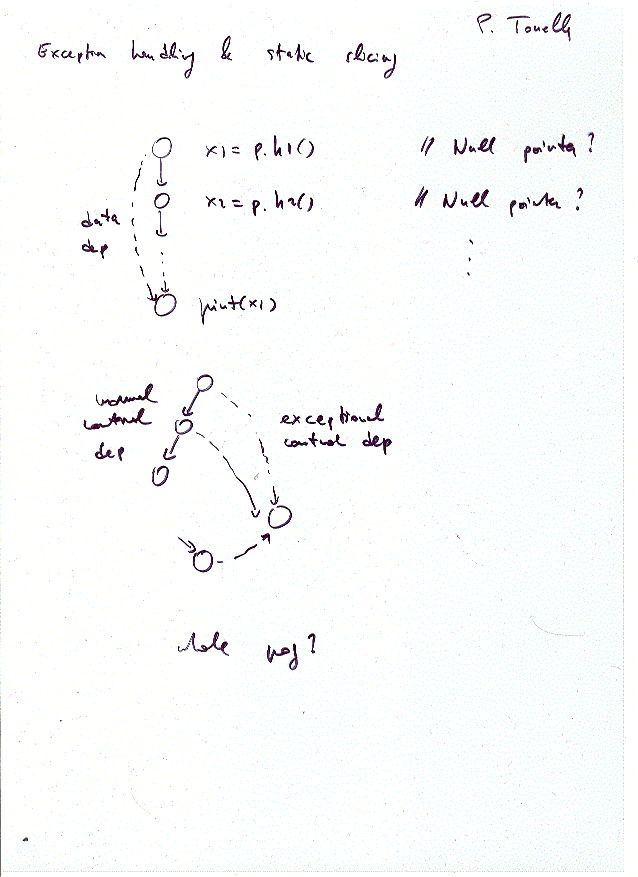 P. Tonella
Exception handling & static slicing
x1 = p.h1() // Null pointer?
x2 = p.h2() // Null pointer?
data
dep
print(x1)
normal
control
dep
exceptional
control dep
whole prog?